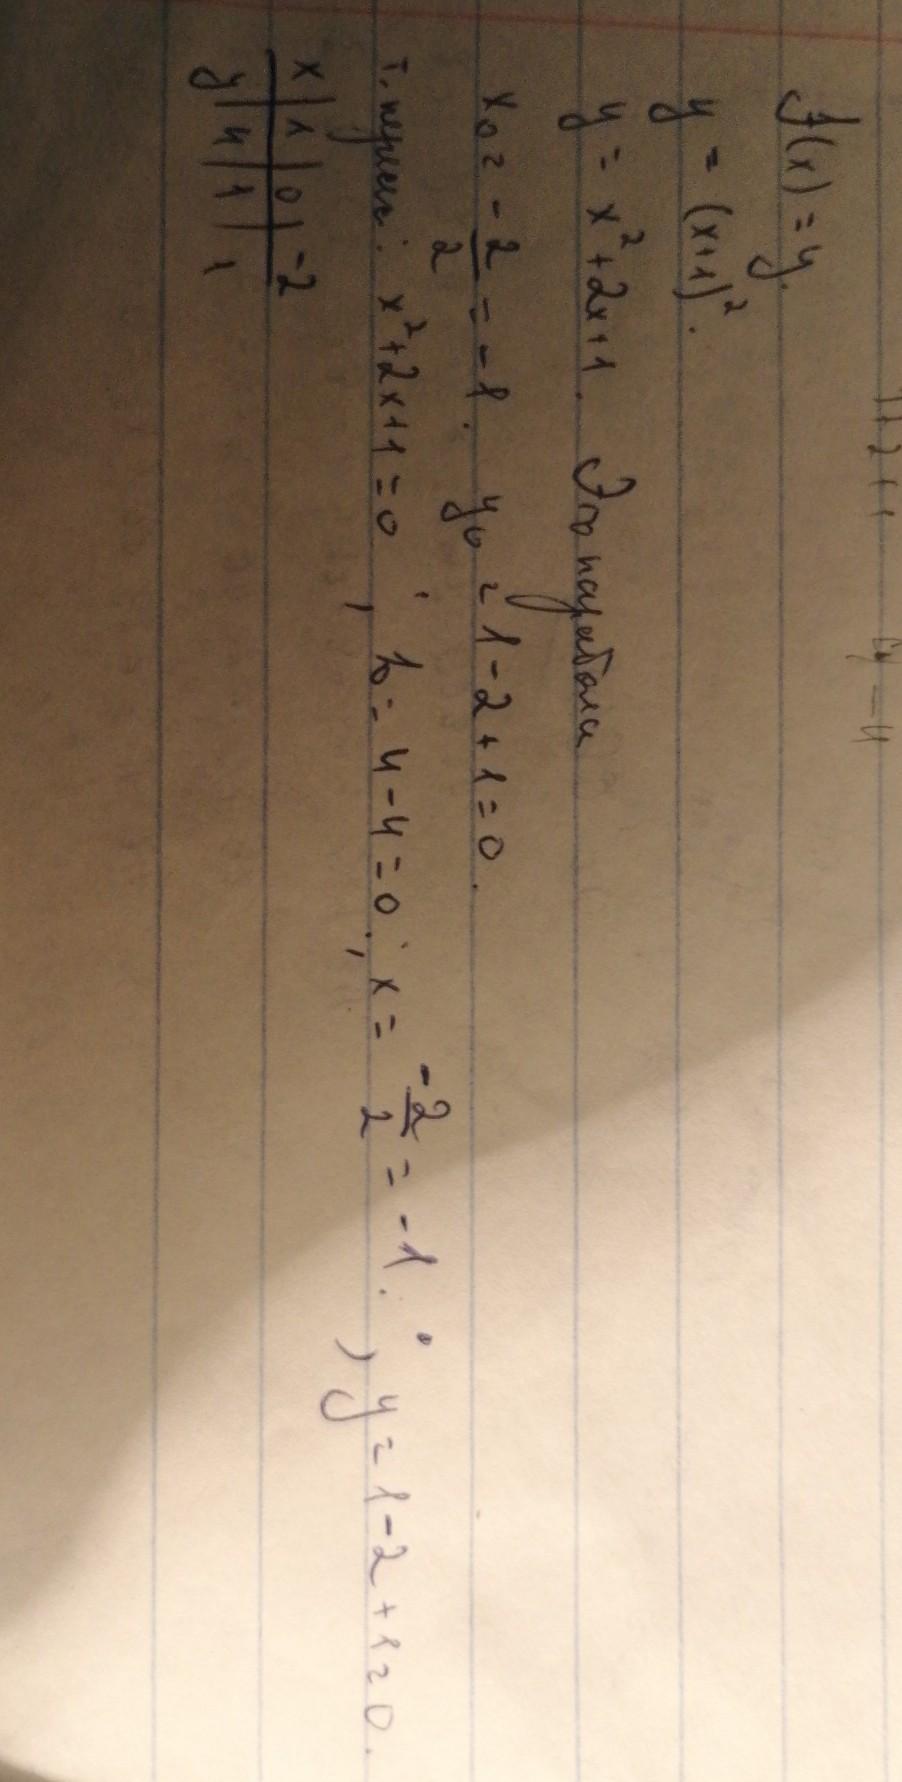 f(x) = y.
y = (x+1)².
y = x²+2x+1. Это парабола
x₀ = -2/2 = -1. y₀ = 1-2+1=0.
т. пересеч: x²+2x+1=0; D = 4-4=0; x = -2/2 = -1.; y = 1-2+1=0.
x | 1 | 0 | -2
y | 4 | 1 | 1